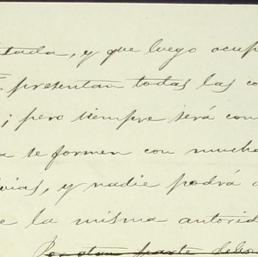 ntada, y que luego ocup
presentan todas las co
; pero siempre será con
a se formen con mucha
vias, y nadie podrá a
e la misma autorid
Por otra parte debo